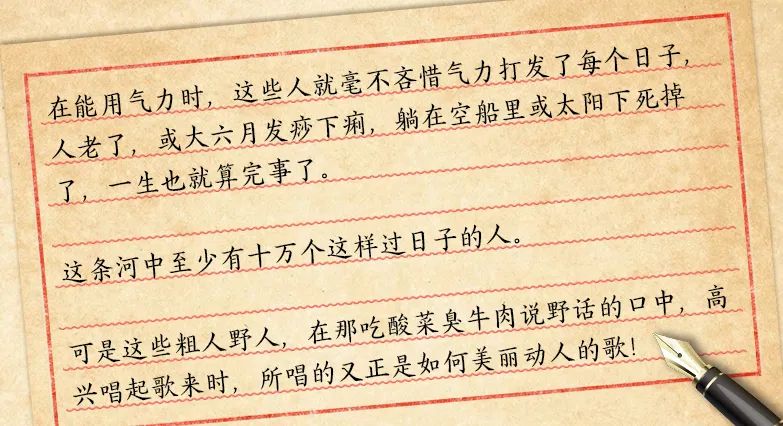 在能用气力时，这些人就毫不吝惜气力打发了每个日子，
人老了，或大六月发痧下痢，躺在空船里或太阳下死掉
了，一生也就算完事了。
这条河中至少有十万个这样过日子的人。
可是这些粗人野人，在那吃酸菜臭牛肉说野话的口中，高
兴唱起歌来时，所唱的又正是如何美丽动人的歌！